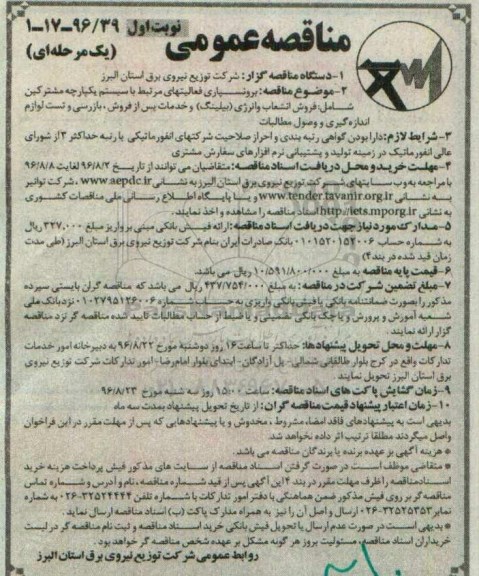 مناقصه عمومی
نوبت اول ۹۶/۳۹-۱۷-۱
(یک مرحله‌ای)
۱-دستگاه مناقصه گزار: شرکت توزیع نیروی برق استان البرز
۲-موضوع مناقصه: برونسپاری فعالیتهای مرتبط با سیستم یکپارچه مشترکین
شامل: فروش انشعاب وانرژی (بیلینگ) و خدمات پس از فروش، بازرسی و تست لوازم
اندازه گیری و وصول مطالبات
۳-شرایط لازم: دارا بودن گواهی رتبه بندی و احراز صلاحیت شرکتهای انفورماتیکی با رتبه حداکثر ۳ از شورای
عالی انفورماتیک در زمینه تولید و پشتیبانی نرم افزارهای سفارش مشتری
۴-مهلت خرید و محل دریافت اسناد مناقصه: متقاضیان می توانند از تاریخ ۹۶/۸/۲ لغایت ۹۶/۸/۸
با مراجعه به وب سایتهای شرکت توزیع نیروی برق استان البرز به نشانی www.aepdc.ir، شرکت توانیر
به نشانی www.tender.tavanir.org.ir و یا پایگاه اطلاع رسانی ملی مناقصات کشوری
به نشانی http://iets.mporg.ir اسناد مناقصه را مشاهده و اخذ نمایند.
۵-مدارک مورد نیاز جهت دریافت اسناد مناقصه: ارائه فیش بانکی مبنی بر واریز مبلغ ۳۲۷,۰۰۰ ریال
به شماره حساب ۰۱۰۱۵۲۰۱۵۲۰۰۶ بانک صادرات ایران بنام شرکت توزیع نیروی برق استان البرز (طی مدت
زمان قید شده در بند ۴)
۶-قیمت پایه مناقصه به مبلغ ۱۰/۵۹۱/۸۰۰/۰۰۰ ریال می باشد.
۷-مبلغ تضمین شرکت در مناقصه: به مبلغ ۴۳۷/۷۵۴/۰۰۰ ریال می باشد که مناقصه گران بایستی سپرده
مذکور را بصورت ضمانتنامه بانکی یا فیش بانکی واریزی به حساب شماره ۰۱۰۲۷۷۹۵۱۲۶۰۰۶ نزد بانک ملی
شعبه آموزش و پرورش و یا چک بانکی تضمینی و یا ضبط از حساب مطالبات تایید شده مناقصه گر نزد مناقصه
گزار ارائه نمایند.
۸-مهلت و محل تحویل پیشنهادها: حداکثر تا ساعت ۱۶ روز دوشنبه مورخ ۹۶/۸/۲۲ به دبیرخانه امور خدمات
تدارکات واقع در کرج بلوار طالقانی شمالی- پل آزادگان- ابتدای بلوار امام رضا- امور تدارکات شرکت توزیع نیروی
برق استان البرز تحویل نمایند.
۹-زمان گشایش پاکت های اسناد مناقصه: ساعت ۱۵:۰۰ روز سه شنبه مورخ ۹۶/۸/۲۳
۱۰-زمان اعتبار پیشنهاد قیمت مناقصه گران: از تاریخ تحویل پیشنهاد بمدت سه ماه
بدیهی است به پیشنهادهای فاقد امضاء، مشروط، مخدوش و یا پیشنهادهایی که پس از مهلت مقرر در این فراخوان
واصل میگردند مطلقا ترتیب اثر داده نخواهد شد.
* هزینه آگهی بر عهده برنده یا برندگان مناقصه می باشد.
* متقاضی موظف است در صورت گرفتن اسناد مناقصه از سایت های مذکور فیش پرداخت هزینه خرید
اسناد مناقصه را ظرف مهلت مقرر در بند ۴ این آگهی پس از قید شماره مناقصه، نام و آدرس و شماره تماس
مناقصه گر بر روی فیش مذکور ضمن هماهنگی با دفتر امور تدارکات با شماره تلفن ۳۲۵۲۴۴۴۴-۰۲۶ به شماره
نمابر ۳۲۵۲۵۳۵۳-۰۲۶ ارسال و اصل آن را نیز به همراه مدارک پاکت (ب) اسناد مناقصه ارسال نماید.
* بدیهی است در صورت عدم ارسال یا تحویل فیش بانکی خرید اسناد مناقصه و ثبت نام مناقصه گر در لیست
خریداران اسناد مناقصه، مسئولیت بروز هر گونه مشکل بر عهده شخص مناقصه گر خواهد بود.
روابط عمومی شرکت توزیع نیروی برق استان البرز